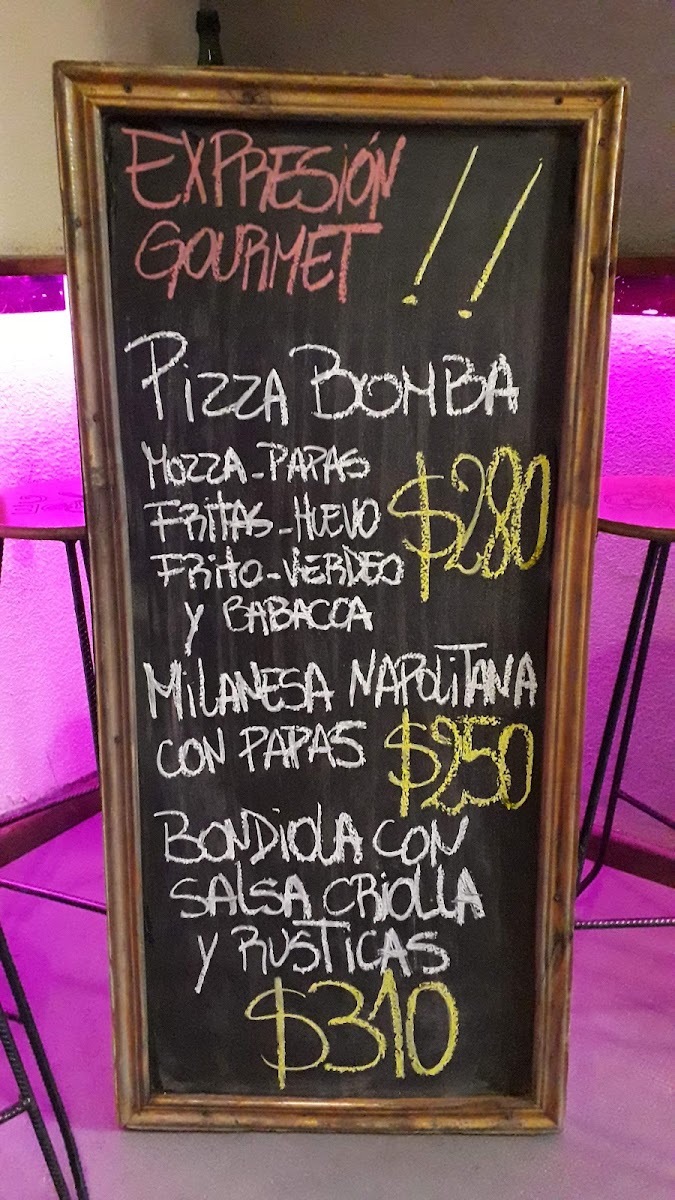 EXPRESIÓN
GOURMET !!
PIZZA BOMBA
MOZZA-PAPAS
FRITAS-HUEVO $280
FRITO-VERDEO
Y BABACOA
MILANESA NAPOLITANA
CON PAPAS $250
BONDIOLA CON
SALSA CRIOLLA
Y RUSTICAS
$310